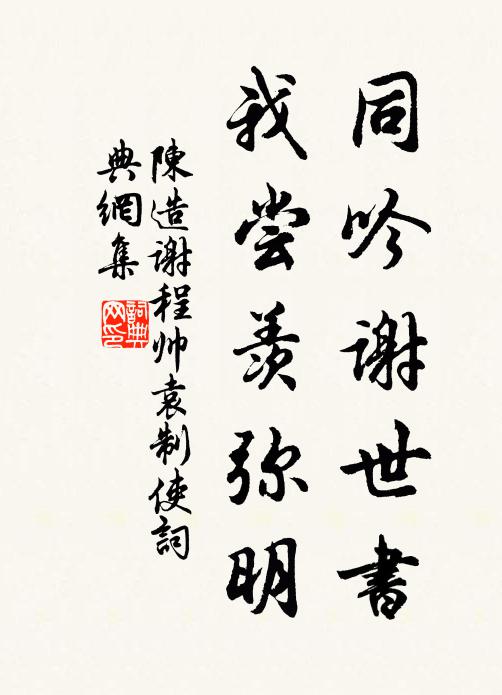 同吟謝世書
我尝羨弥明
陳造謝程帅袁制使詞
典網集
詞典
网印